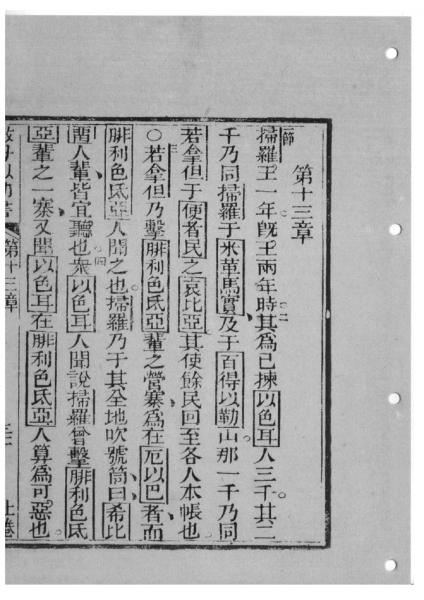 第十三章
一節 掃羅王一年既王兩年時二其爲己揀以色耳人三千其二
千乃同掃羅于米革馬實及于百得以勒山那一千乃同
若拿但于便者民之袁比亞其使餘民回至各人本帳也
○三若拿但乃擊腓利色氐亞輩之營寨爲在厄以巴者而
腓利色氐亞人聞之也掃羅乃于其全地吹號筒曰希比
留人輩皆宜聽也四衆以色耳人聞說掃羅曾擊腓利色氐
亞輩之一寨又聞以色耳在腓利色氐亞人算爲可惡也
第十三章